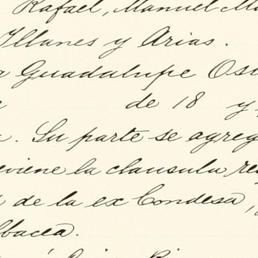 Rafael, Manuel M
Yllanes y Arias.
a Guadalupe Os
de 18 y
. Su parte se agreg
viene la clausula re
de la ex Condesa,
lbacea.